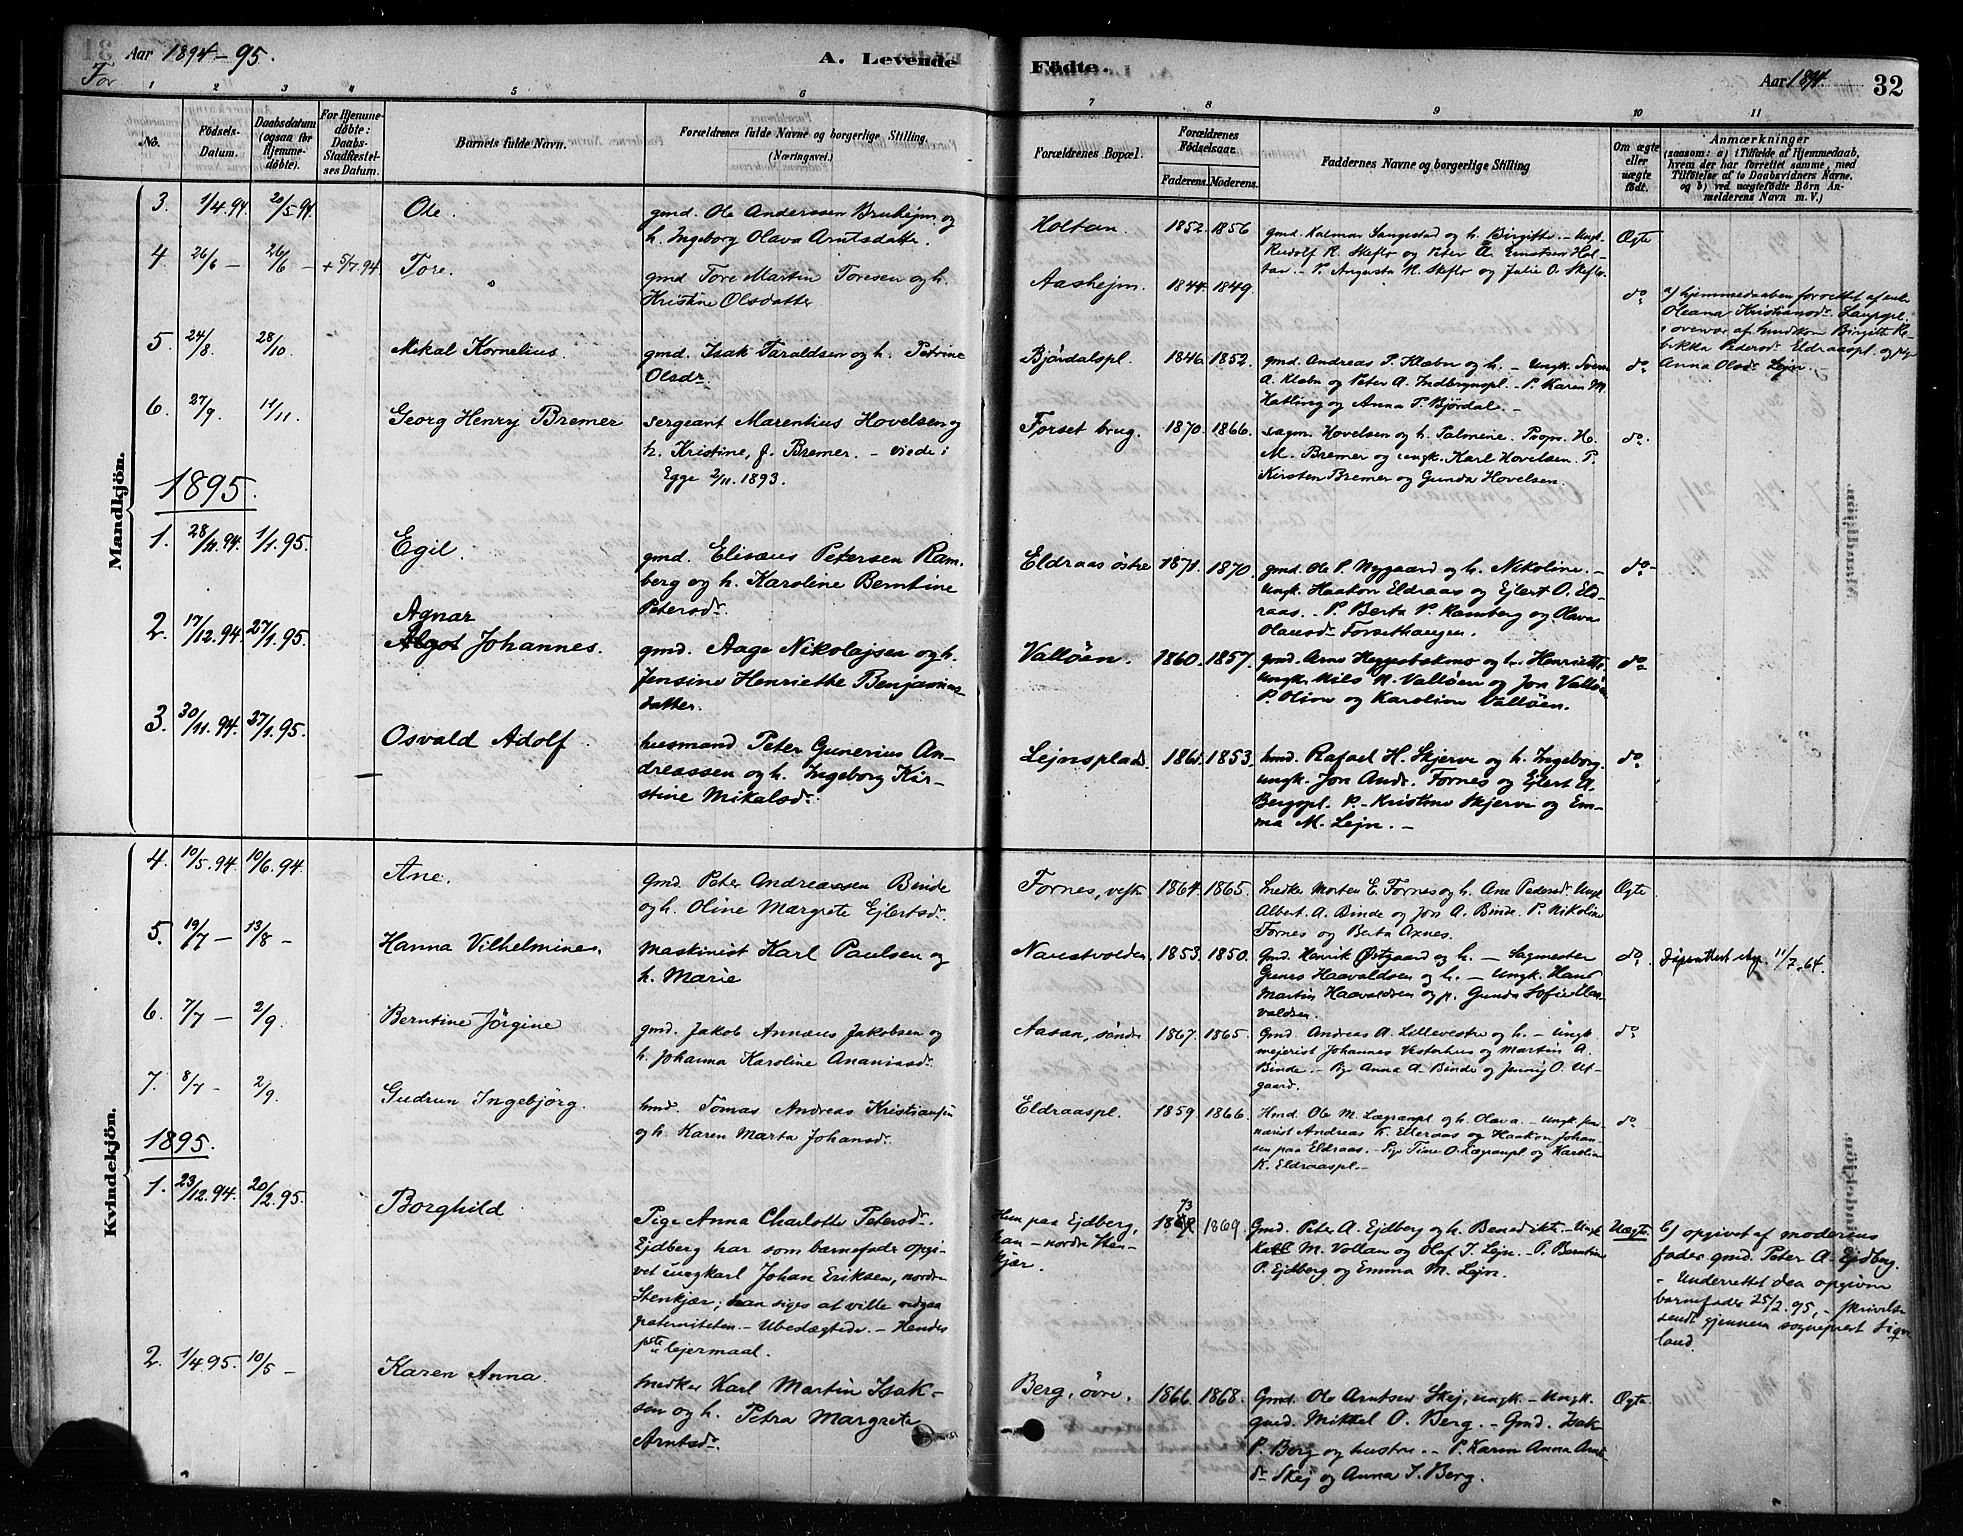 For
Aar 1894-95.
A. Levende
Fødte.
Aar 1894.
32
1 2 3 4 5 6 7 8 9 10 11
No.
Fødsels-Datum.
Daabsdatum (ogsaa for Hjemmedøbte).
For Hjemmedøbte: Daabs-Stadfæstelses Datum.
Barnets fulde Navn.
Forældrenes fulde Navne og borgerlige Stilling. (Næringsvei.)
Forældrenes Bopæl.
Forældrenes Fødselsaar.
Faderens. Moderens.
Faddernes Navne og borgerlige Stilling
Om ægte eller uægte født.
Anmærkninger
(saasom: a) i Tilfælde af Hjemmedaab,
hvem der har forrettet samme, med
Tilføielse af to Daabsvidners Navne,
og b) ved uægtefødte Börn An-
melderens Navn m. V.)
Mandkjön.
3. 1/4.94. 20/5.94. Ole. gmd. Ole Anderssen Bruhejm og
h. Ingeborg Olava Arntsdatter.
Holtan. 1852. 1856
gmd. Kalmar Sangestad og h. Birgitte. - Ungk.
Rudolf R. Skeflo og Peter A. Ernstsen Hol-
tan. - P. Augusta M. Skeflo og Julie O. Skeflo.
Ægte
4. 26/6 - 26/6 - + 5/7.94. Tore. gmd Tore Martin Toresen og h.
Kristine Olsdatter
Aashejm. 1844. 1849. do
a) hjemmedaaben forrettet af enke
Oleana Kristiansdr
i overvær af
Pedersdr Eldraaspl. og
Anna Olsdr Lejn.
5. 24/8. 28/10. Mekal Kornelius. gmd. Isak Taraldsen og h. Petrine
Olsdr
Björdalspl. 1846. 1852.
gmd. Andreas P. Klæbu og h. - Ungk. Svenn
A. Klæbu og Peter A. Indbrynspl. - P. Karen M.
Hatling og Anna P. Björdal. -
do
6. 27/9. 11/11. Georg Henry Bremer sergeant Marentius Hovelsen og
h. Kristine, f. Bremer. - viede i
Egge 2/11. 1893.
Forset brug. 1870. 1866.
sagm. Hovelsen og h. Palmine. Prop. H.
M. Bremer og ungk. Karl Hovelsen. P.
Kirsten Bremer og Gunda Hovelsen.
do
1895.
1. 28/11.94. 1/1.95. Egil. gmd. Elisæus Petersen Ram-
berg og h. Karoline Berntine
Petersdr
Eldraas östre 1871. 1870.
gmd. Ole P. Nygaard og h. Nikoline. -
Ungk. Haakon Eldraas og Ejlert O. Eld-
raas. - P. Berta P. Ramberg og Olava
Olausdr Forsethaugen.
do
2. 17/12.94. 27/1.95. Agnar
Algot Johannes. gmd. Aage Nikolajsen og h.
Jensine Henriette Benjamins-
datter.
Valløen. 1860. 1857.
gmd. Arne Heggesbakmo og h. Henriette
Ungk. Nils N. Valløen og Jon Valløen
P. Oline og Karoline Valløen.
do
3. 30/11.94. 27/1.95. Osvald Adolf. husmand Peter Gunerius An-
dreassen og h. Ingeborg Kir-
stine Mikalsdr.
Lejnsplads 1861. 1853.
hmd. Rafael H. Skjerve og h. Ingeborg.
ungk. Jon Andr. Fornes og Ejlert A.
Bergspl. P. Kristine Skjerve og Em-
ma M. Lejn. -
do
Kvindekjön.
4. 10/5.94. 10/6.94. Ane. Gmd. Peter Andreassen Binde
og h. Oline Margrete Ejlertsdr.
Fornes, vestre 1864. 1865.
Smedker Morten E. Fornes og h. Ane Pedersdr. Ungk
Albert A. Binde og Jon A. Binde. P. Nikoline
Fornes og Berta Axnes.
Ægte
5. 19/7 - 13/8 - Hanna Vilhelmine. Maskinist Karl Paulsen og
h. Marie
Naustvolden 1853. 1850.
Gmd. Henrik Østgaard og h. - Sagmester
Grenes Haavaldsen og h. - Ungk. Hans
Martin Haavaldsen og p. Gunda Sofie Haa-
valdsen.
do 11/7.64.
6. 7/7 - 2/9. Berntine Jörgine gmd. Jakob Annæus Jakobsen og
h. Johanna Karoline Ananiasdr.
Aasan, söndre 1867. 1865.
Gmd. Andreas A. Lillevestre og h. - Ungk
mejerist Johannes Vesterhus og Martin A.
Binde. - Pg. Anna A. Binde og Jenny O. Ut-
gaard.
do
7. 8/7 - 2/9. Gudrun Ingebjörg. hmd. Tomas Andreas Kristiansen
og h. Karen Marta Johansdr.
Eldraaspl. 1859. 1866.
Hmd. Ole M. Lægranpl og h. Olava. - Ungk
Andreas K. Eldraas og Haakon Johan-
sen paa Eldraas. - Pige Tine O. Lægranpl og Karoline
K. Eldraaspl. -
do
1895.
1. 23/12.94. 20/2.95. Borghild Pige Anna Charlotte Petersdr.
Ejdberg har som barnefader opgi-
vet ungkarl Johan Eriksen, nordre
Stenkjær; han siges at ville vedgaa
paterniteten. - Ubeslægtede. - Hendes
1ste lejermaal.
Hun paa Ejdberg,
han - nordre Sten-
kjær.
73
1869.
Gmd. Peter A. Ejdberg og h. Benedikte. - Ungk
Karl M. Vollan og Olaf I. Lejn. - P. Berntine
P. Ejdberg og Emma M. Lejn.
Uægte.
b) opgivet af moderens
fader gmd. Peter A. Ejdberg.
- Underrettet den opgivne
barnefader 25/2.95. - skrivelse
sendt gjennem sogneprest
land.
2. 1/4.95. 10/5 - Karen Anna. Smedker Karl Martin Isak-
sen og h. Petra Margrete
Arntsdr.
Berg, övre. 1866. 1868.
Gmd. Ole Arntsen Skej, ungk. - Ungk.
gmd. Mikkel O. Berg. - Gmd. Isak
P. Berg og hustru. - P. Karen Anna Arnts-
dr Skej og Anna I. Berg.
Ægte.